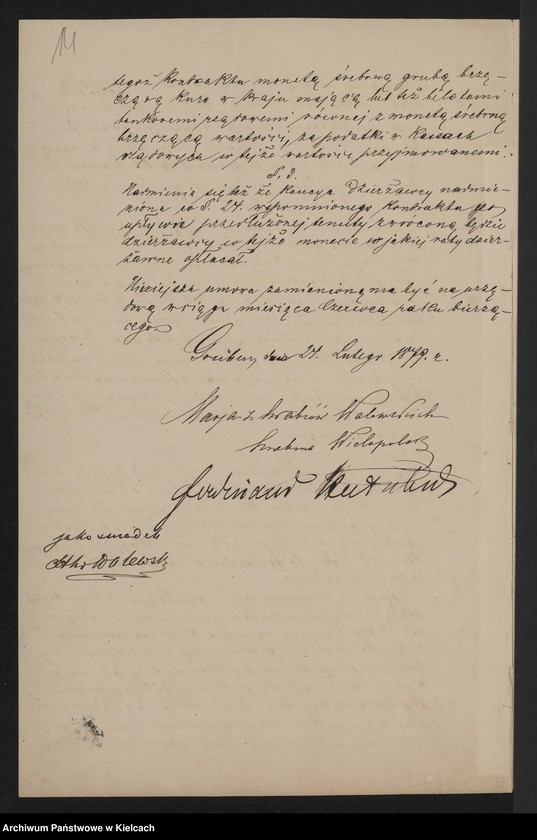 11
tegoż Kontraktu monetą srebrną grubą brzę-
czącą kurs w kraju mającą lub też biletami
bankowemi rządowemi równej z monetą srebrną
brzęczącą wartości, za podatki w Kassach
rządowych w tejże wartości przyjmowanemi.
§. 3.
Nadmienia się też że kaucya Dzierżawcy nadmie-
niona w §. 24. wspomnionego Kontraktu po
upływie przedłużonej tenuty zwróconą będzie
dzierżawcy w tejże monecie w jakiej raty dzier-
żawne opłacał.
Niniejsza umowa zamienioną ma być na urzę-
dową w ciągu miesiąca Czerwca roku bieżą-
cego.
dnia 24. Lutego 1879. r.
Marja z hrabiów Walewskich
hrabina Wielopolska
Ferdinand
jako świadek
Walewski
Archiwum Państwowe w Kielcach